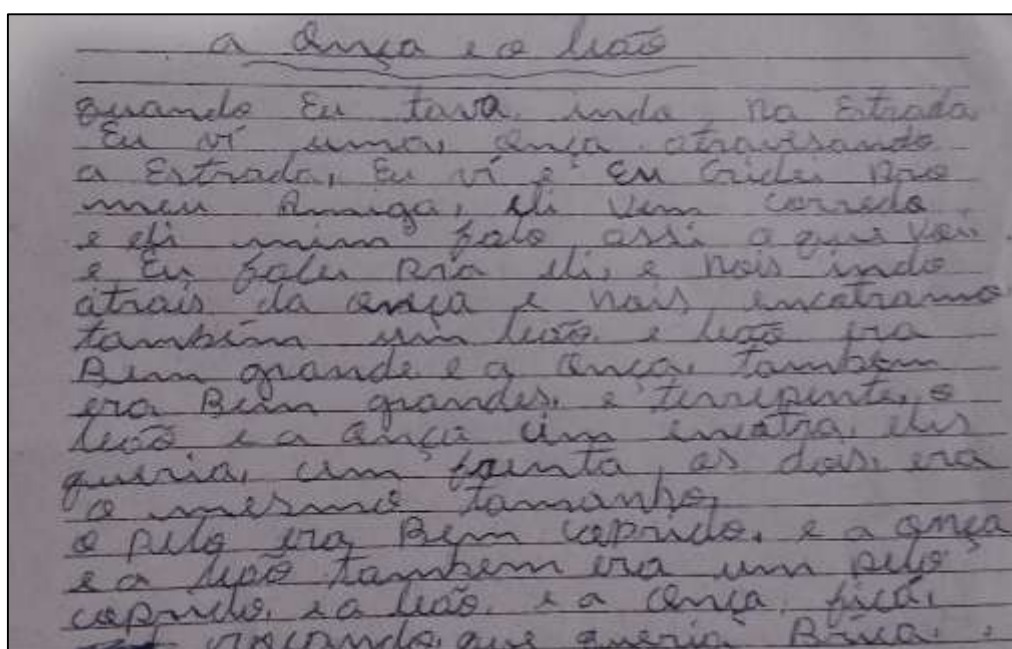 a Onça e o leão
quando Eu tava indo na Estrada
Eu ví uma onça atravisando
a Estrada, Eu ví e Eu Gridei pro
meu Amigo, eli vem corredo
e eli mim falo assi o que foi,
e Eu falei pra eli, e nois indo
atrais da onça e nois encotramo
também um leão e leão era
Bem grande e a onça também
era Bem grandes, e terrepente, o
leão e a onça cim encotra, elis
queria, cim os dois, era
o mesmo tamanho,
o pelo era Bem coprido, e a onça
e a leão também era um pelo
coprido, e a leão, e a onça, ficá,
que queria Brica